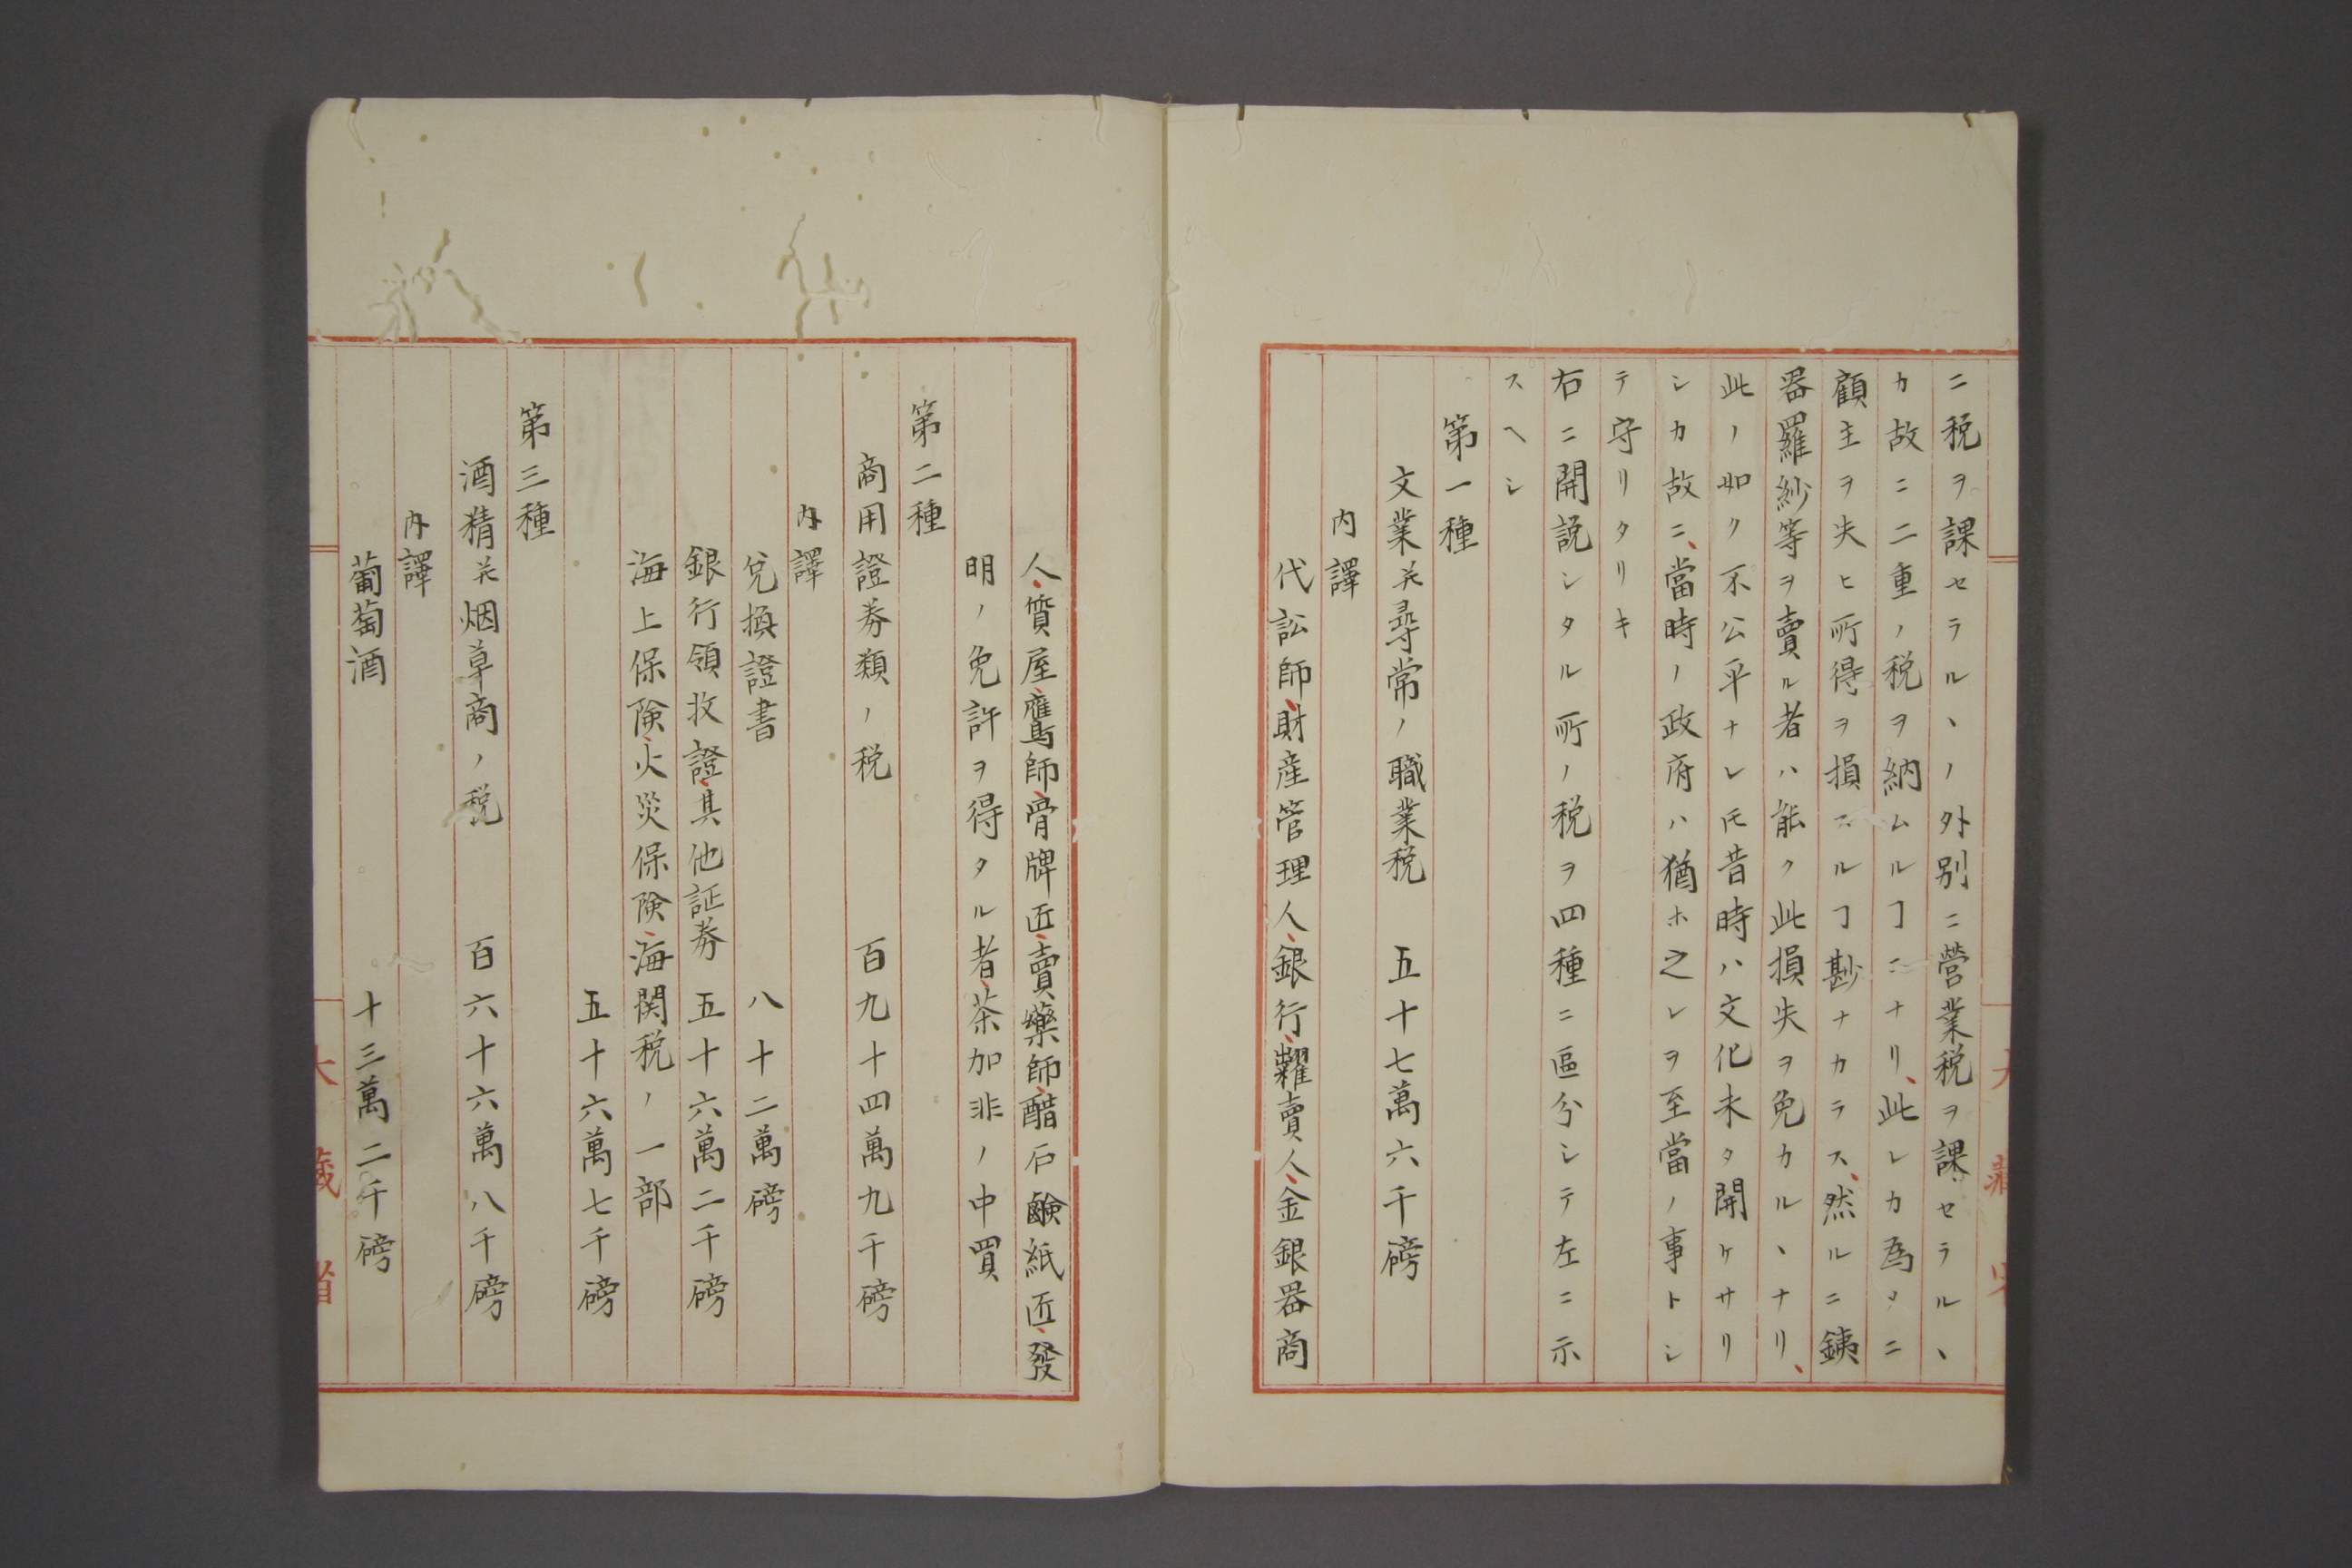 ニ税ヲ課セラルヽノ外別ニ營業税ヲ課セラルヽ
カ故ニ二重ノ税ヲ納ムルヿニナリ、此レカ為メニ
顧主ヲ失ヒ所得ヲ損スルヿ尠ナカラス、然ルニ銕
器羅紗等ヲ賣ル者ハ能ク此損失ヲ免カルヽナリ、
此ノ如ク不公平ナレ𪜈昔時ハ文化未タ開ケサリ
シカ故ニ、當時ノ政府ハ猶ホ之レヲ至當ノ事トシ
テ守リタリキ
右ニ開説シタル所ノ税ヲ四種ニ區分シテ左ニ示
スヘシ
第一種
文業並尋常ノ職業税 五十七萬六千磅
内譯
代訟師、財産管理人、銀行、糶賣人、金銀器商
人、質屋、鷹師、骨牌匠、賣藥師、醋戸、鹸紙匠、發
明ノ免許ヲ得タル者、茶加非ノ中買
第二種
商用證券類ノ税 百九十四萬九千磅
内譯
兌換證書 八十二萬磅
銀行領收證、其他証券 五十六萬二千磅
海上保険、火災保険、海関税ノ一部
五十六萬七千磅
第三種
酒精並烟草商ノ税 百六十六萬八千磅
内譯
葡萄酒 十三萬二千磅
大藏省